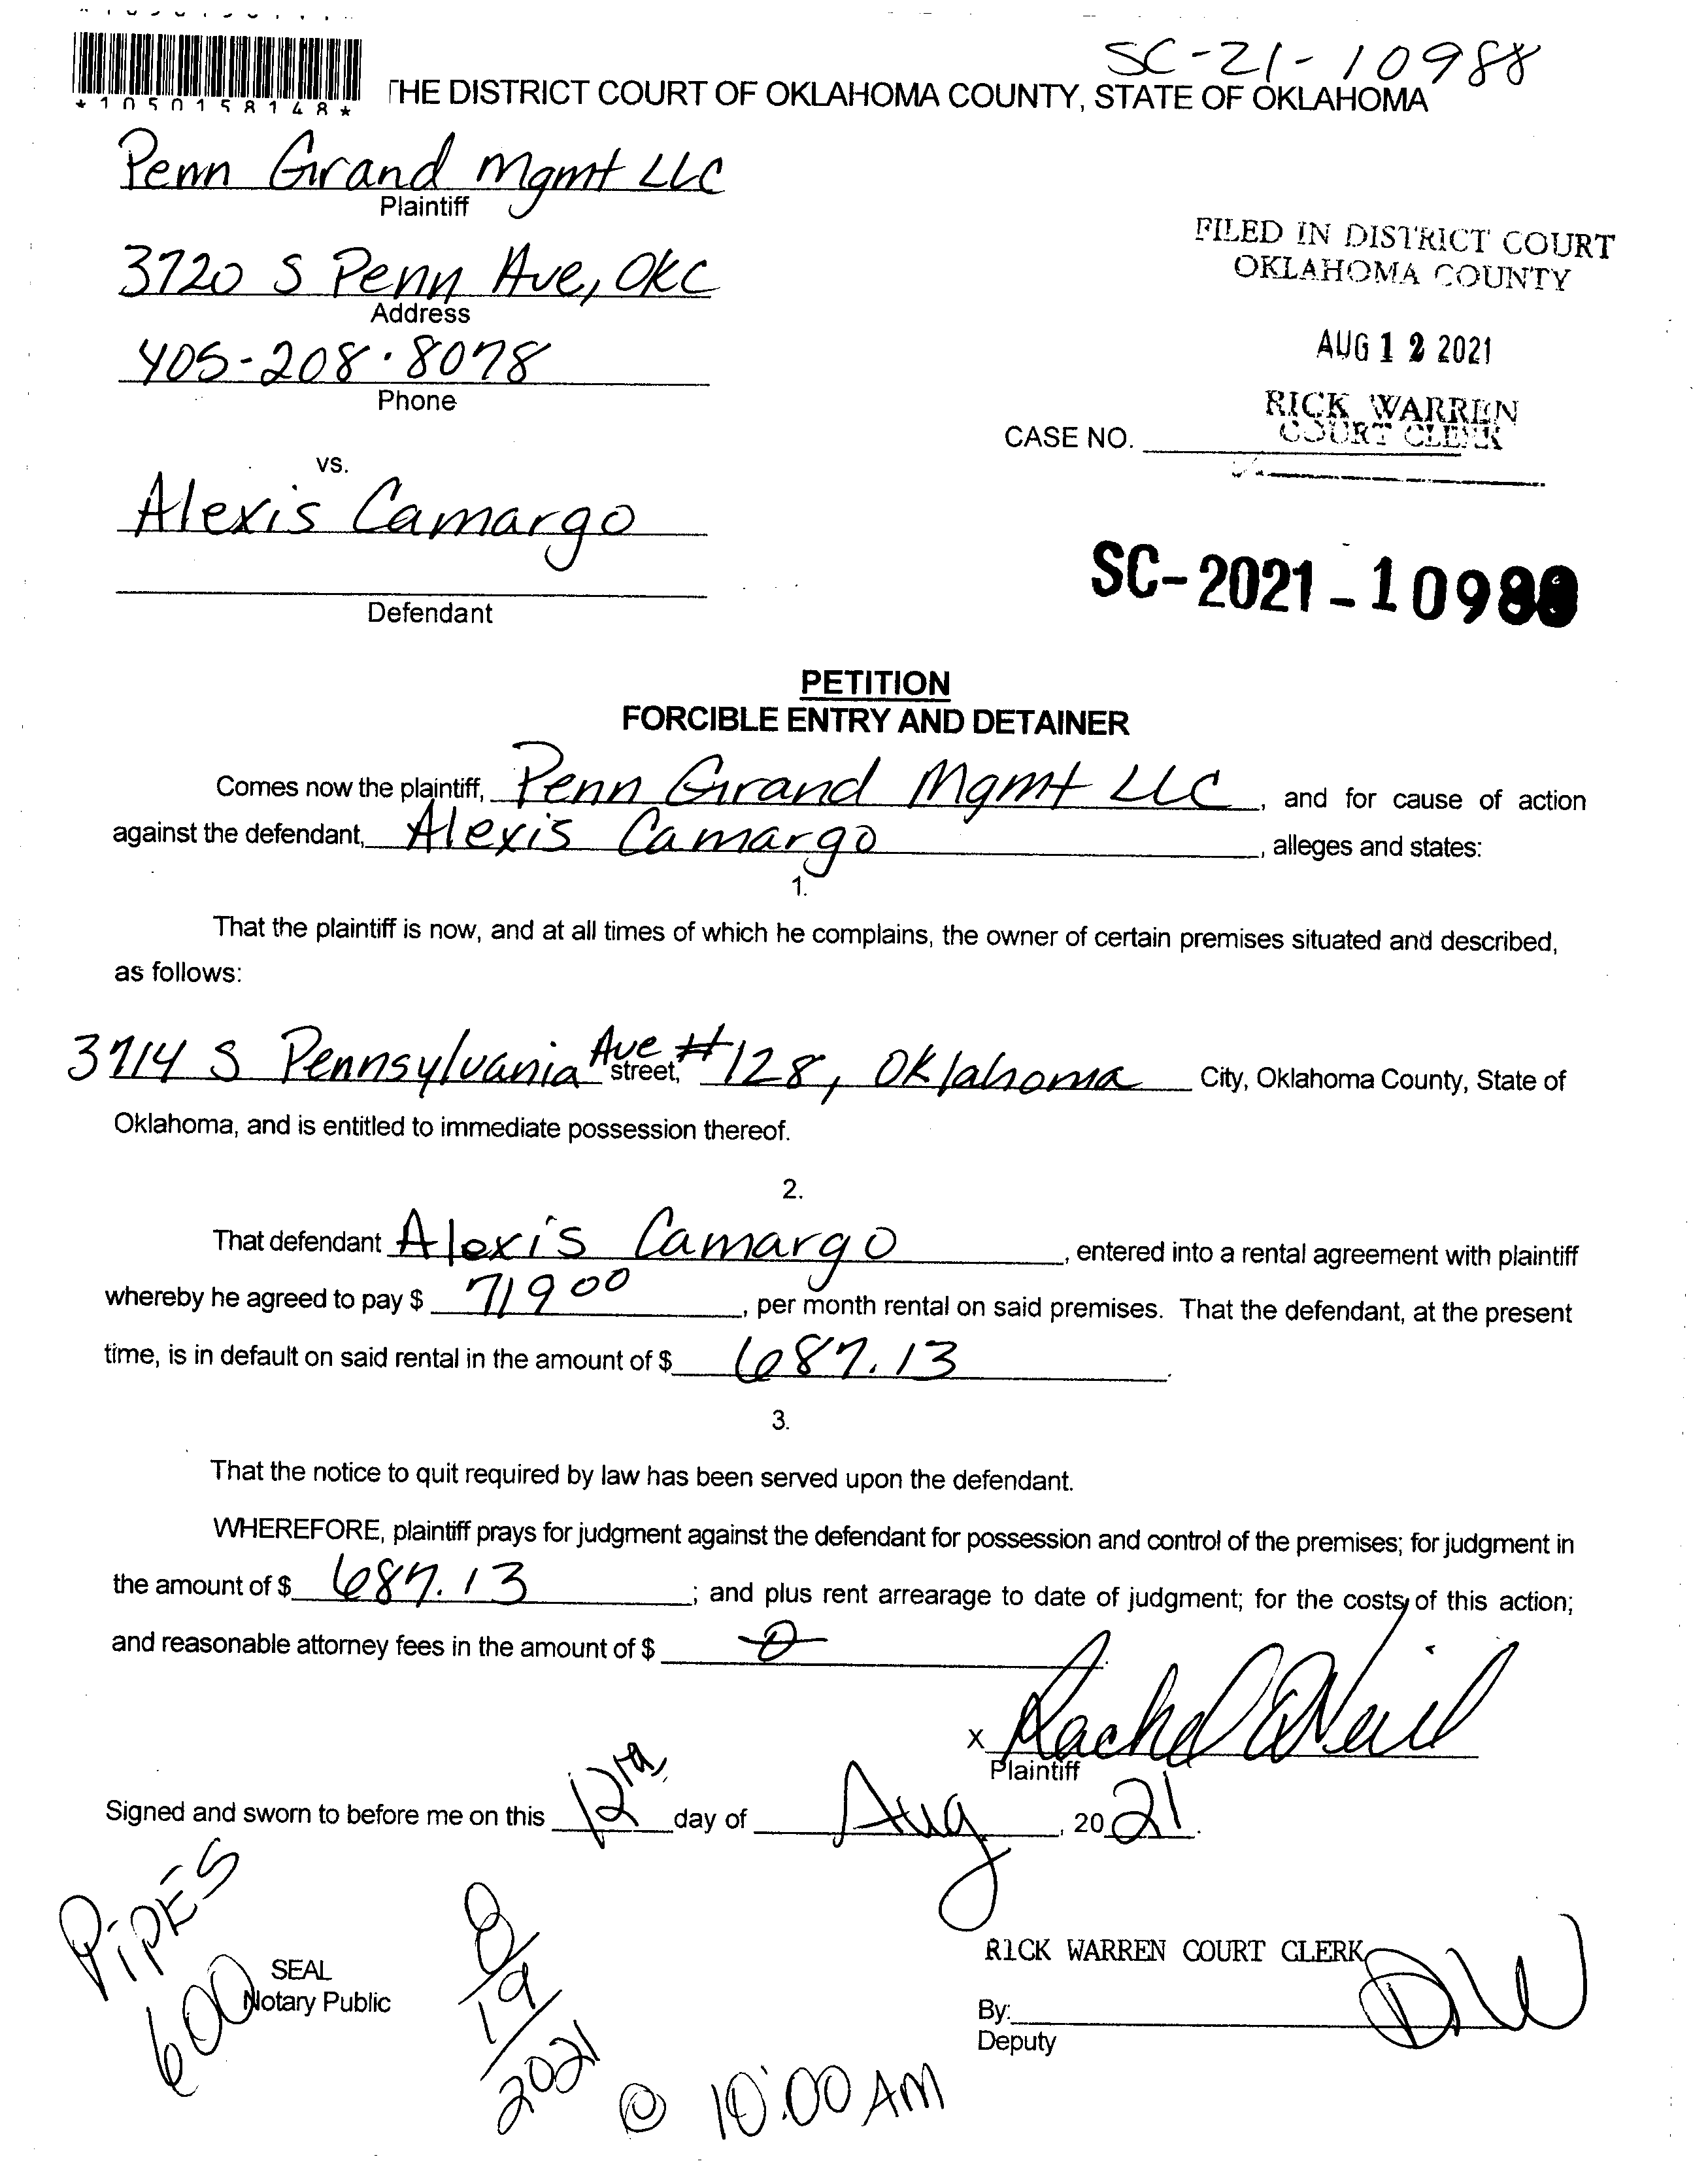 SC-21-10988
*1050158148*
THE DISTRICT COURT OF OKLAHOMA COUNTY, STATE OF OKLAHOMA
Penn Grand Mgmt LLC
Plaintiff
3720 S Penn Ave, OKC
Address
405-208-8078
Phone
FILED IN DISTRICT COURT
OKLAHOMA COUNTY
AUG 12 2021
RICK WARREN
COURT CLERK
CASE NO.
vs.
Alexis Camargo
Defendant
SC-2021-10988
PETITION
FORCIBLE ENTRY AND DETAINER
Comes now the plaintiff, Penn Grand Mgmt LLC, and for cause of action
against the defendant, Alexis Camargo, alleges and states:
1.
That the plaintiff is now, and at all times of which he complains, the owner of certain premises situated and described,
as follows:
3714 S Pennsylvania Ave street, #128, Oklahoma City, Oklahoma County, State of
Oklahoma, and is entitled to immediate possession thereof.
2.
That defendant Alexis Camargo, entered into a rental agreement with plaintiff
whereby he agreed to pay $ 719 00, per month rental on said premises. That the defendant, at the present
time, is in default on said rental in the amount of $ 687.13.
3.
That the notice to quit required by law has been served upon the defendant.
WHEREFORE, plaintiff prays for judgment against the defendant for possession and control of the premises; for judgment in
the amount of $ 687.13; and plus rent arrearage to date of judgment; for the costs, of this action;
and reasonable attorney fees in the amount of $ 0.
X Rachel O'Neil
Plaintiff
Signed and sworn to before me on this 12 day of Aug, 2021.
PiPES
600
SEAL
Notary Public
8/19/2021
@ 10:00 AM
RICK WARREN COURT CLERK
By: DW
Deputy